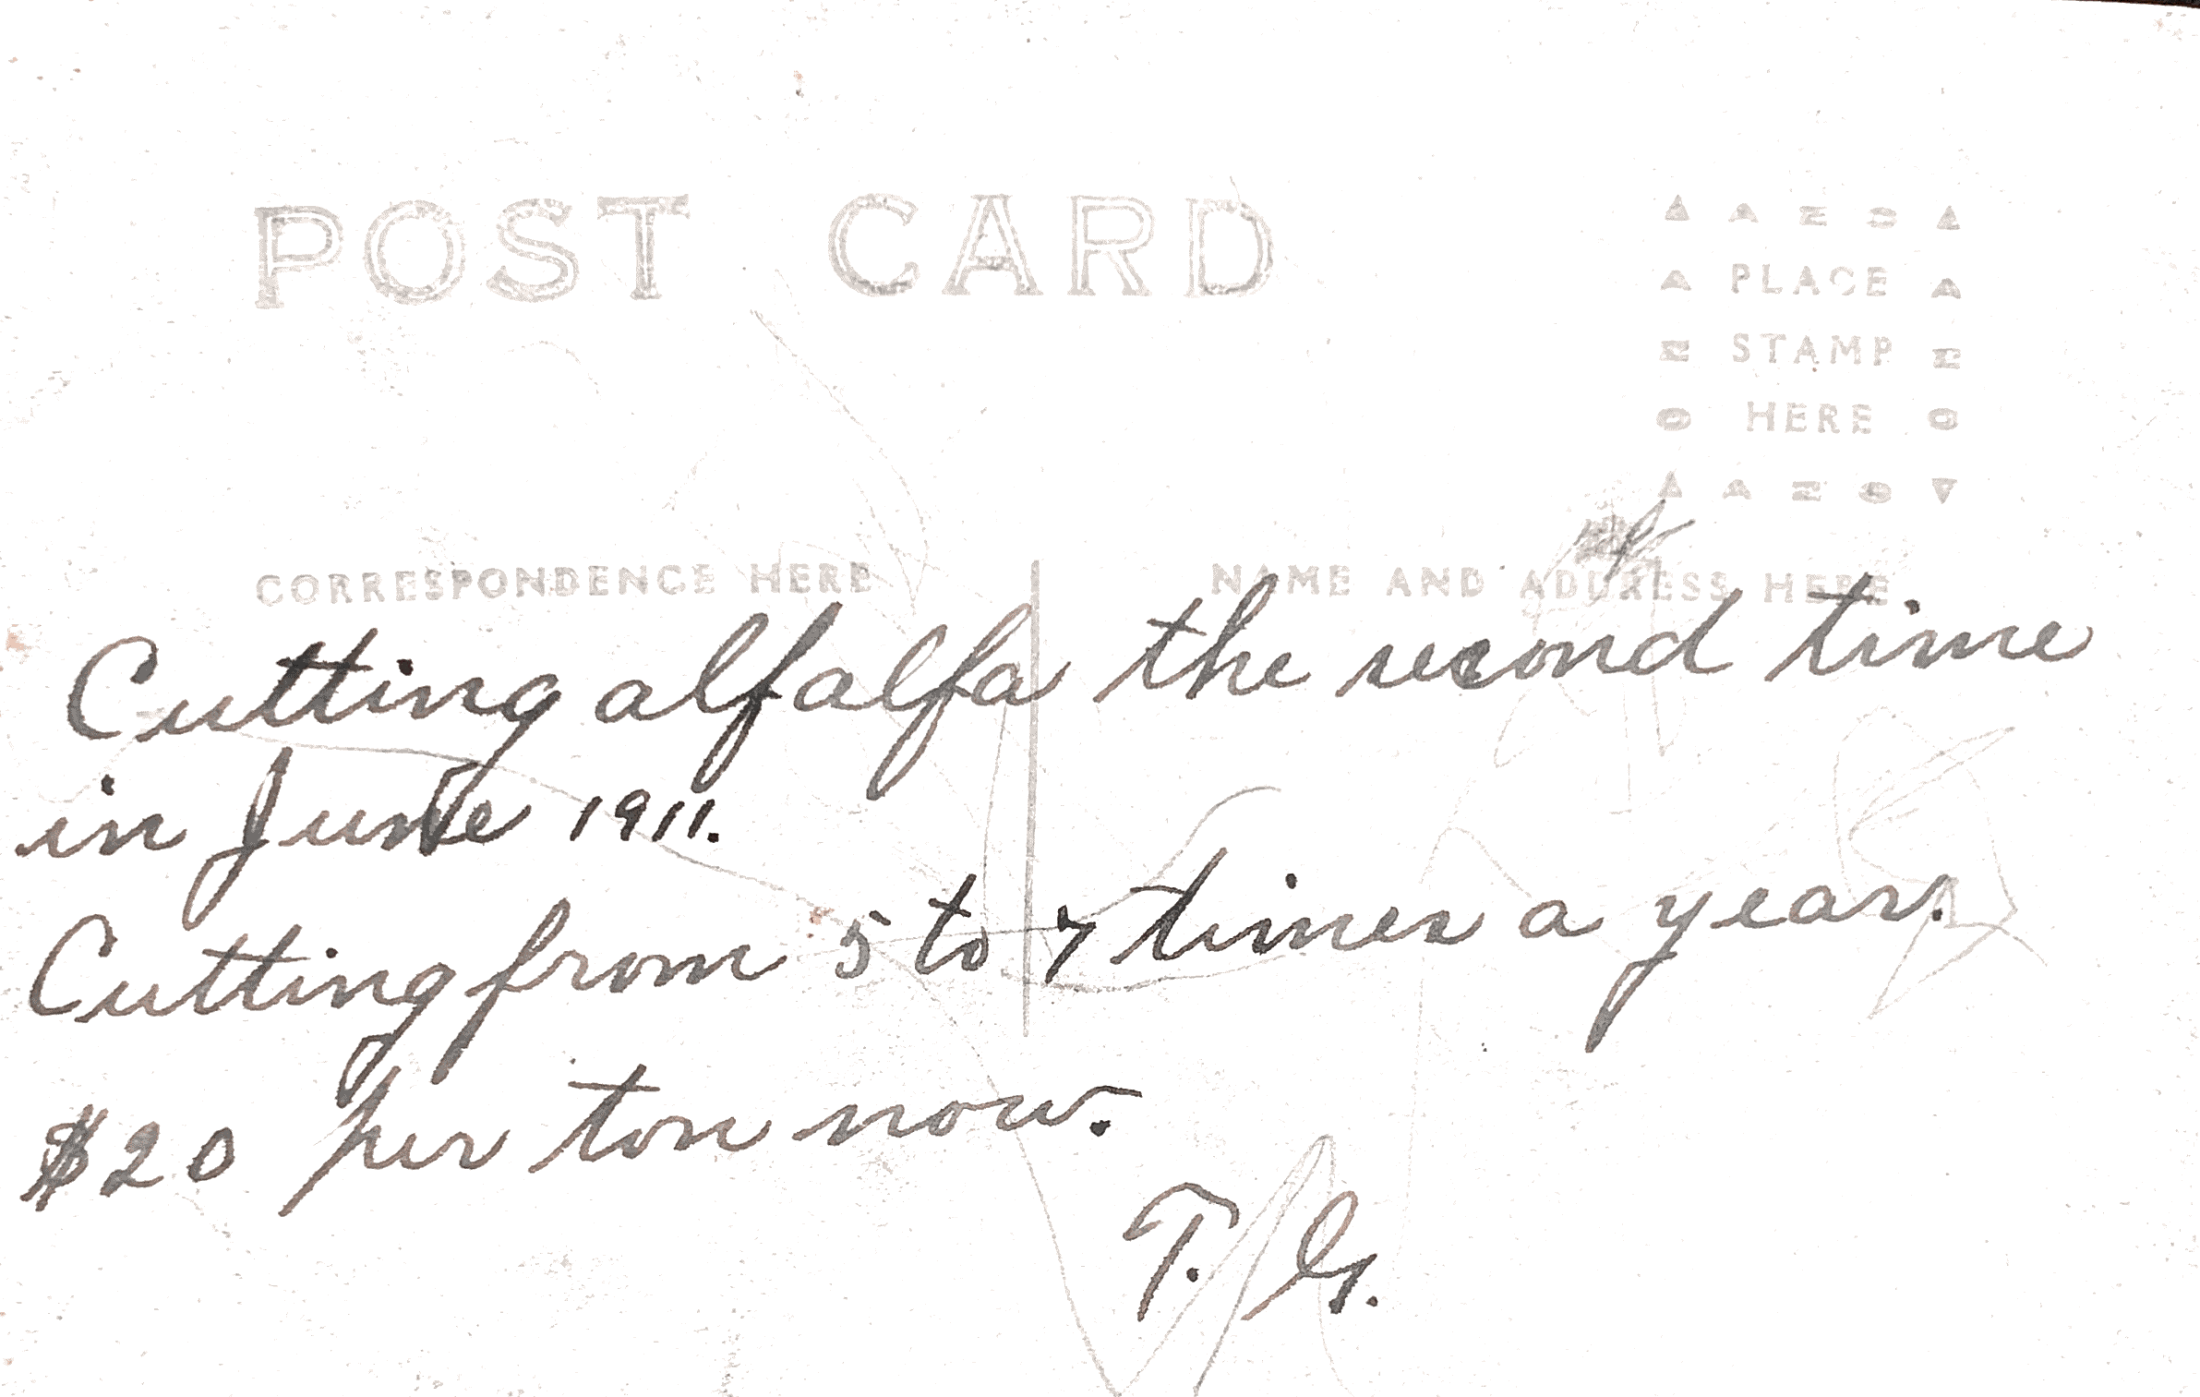 POST CARD
PLACE
STAMP
HERE
CORRESPONDENCE HERE
NAME AND ADDRESS HERE
Cutting alfalfa the second time
in June 1911.
Cutting from 5 to 7 times a year.
$20 per ton now.
T. G.